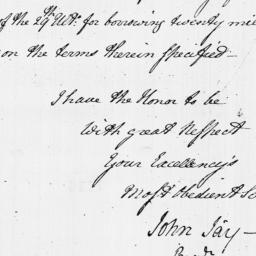 of the 29th Ulto. for borrowing twenty mi
on the terms therein specified—
I have the Honor to be
With great Respect
Your Excellency's
Most Obedient Se
John Jay—